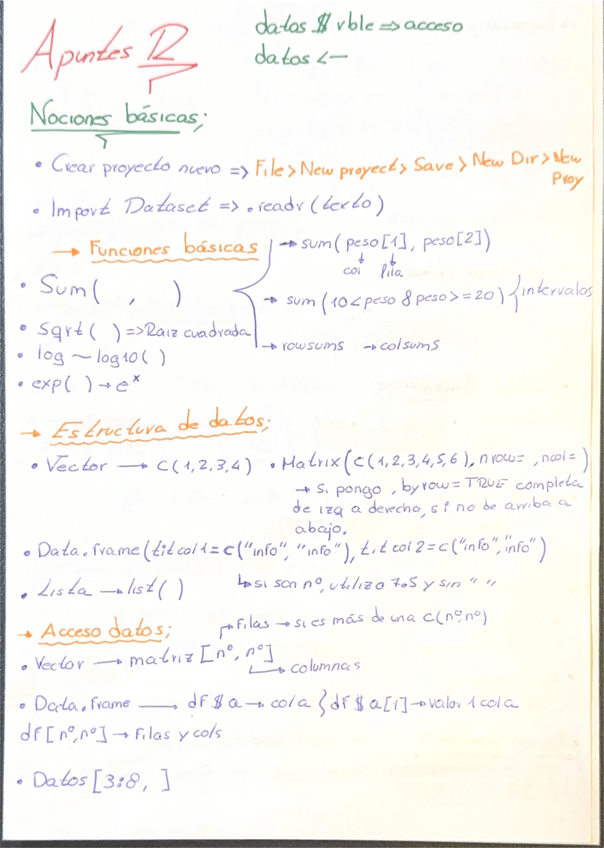 Apuntes R
datos $ vble => acceso
datos <-
Nociones básicas;
• Crear proyecto nuevo => File > New proyect > Save > New Dir > New Proy
• Import Dataset => .readr (texto)
→ Funciones básicas
• Sum( , )
→ sum( peso[1], peso[2])
col fila
→ sum (10 < peso & peso >= 20) } intervalos
→ rowsums → colsums
• sqrt( ) => Raiz cuadrada
• log ~ log10( )
• exp( ) → e^x
→ Estructura de datos;
• Vector → c(1,2,3,4)
• Matrix(c(1,2,3,4,5,6), nrow= , ncol= )
→ Si pongo , byrow=TRUE completa
de izq a derecha, si no de arriba a
abajo.
• Data.frame(titcol1=c("info", "info"), titcol2=c("info", "info")
↳ si son nº, utilizo 7.5 y sin " "
• Lista → list( )
→ Acceso datos;
Filas → si es más de una c(nº,nº)
• Vector → matriz [nº, nº]
columnas
• Data.frame → df $ a → col a } df $ a[1] → valor 1 col a
df[nº,nº] → Filas y cols
• Datos [3:8, ]